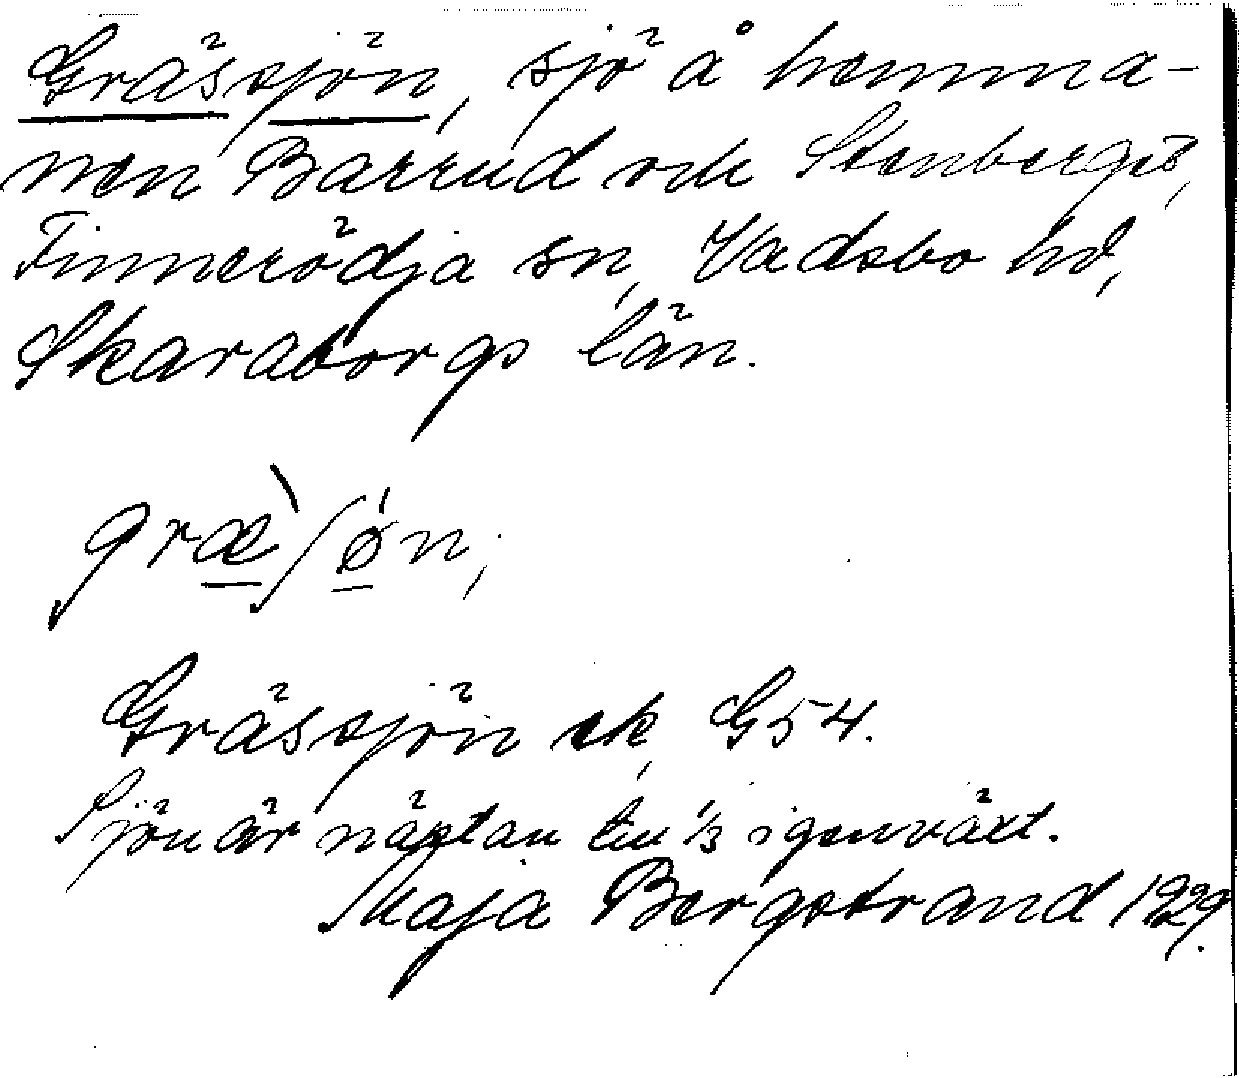 Grässjön, sjö å hemma-
nen Barrud och Stenbergs,
Finnerödja sn, Vadsbo hd,
Skaraborgs län.
græ̀ʃǿn,
Grässjön ek, G54.
Sjön är nästan till 1/3 igenväxt.
Maja Bergstrand 1929.